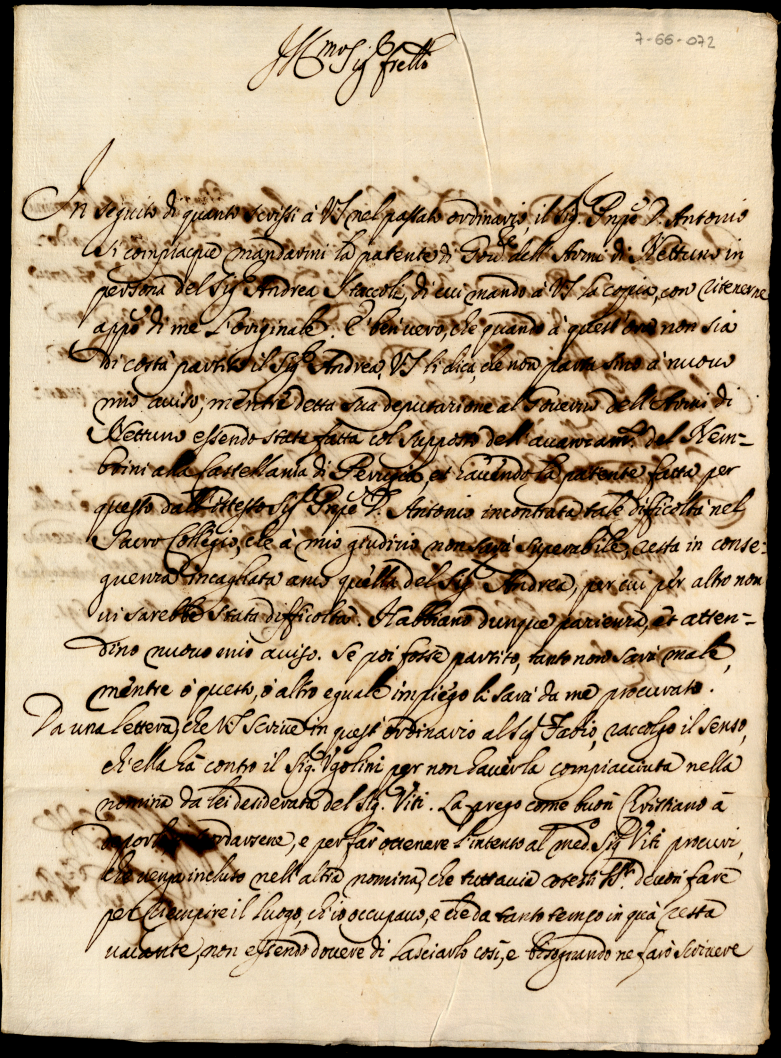 7-66-072
Ill.mo Sig.r frello
In seguito di quanto scrissi à VS nel passato ordinario, il Sig. Pnpe D. Antonio
si compiacque mandarmi la patente di Gov.re dell'Armi di Nettuno in
persona del Sig.r Andrea Staccoli, di cui mando à VS la copia, con ritenerne
app.o di me l'originale. E' ben vero, che quando à quest'ora non sia
di costà partito il Sig.r Andrea, VS li dica, che non parta sino à nuovo
mio aviso, mentre detta sua deputazione al Governo dell'Armi di
Nettuno essendo stata fatta col supposto dell'avanzam.to del Nem-
brini alla Castellania di Perugia, et havendo la patente fatta per
questo dall'istesso Sig.r Pnpe D. Antonio incontrata tale difficoltà nel
Sacro Collegio, che à mio giudizio non sarà superabile, resta in conse-
guenza incagliata anco quella del Sig.r Andrea, per cui per altro non
vi sarebbe stata difficoltà. Habbiano dunque pazienza, et atten-
dino nuovo mio aviso. Se poi fosse partito, tanto non sarà male,
mentre ò questo, ò altro eguale impiego li sarà da me procurato.
Da una lettera, che VS scrive in quest'ordinario al Sig.r Fabio, raccolgo il senso,
ch'ella hà contro il Sig. Ugolini per non haverla compiacciuta nella
nomina da lei desiderata del Sig. Viti. La prego come buon Cristiano à
deporlo, scordarsene, e per far ottenere l'intento al med.o Sig.r Viti procuri,
che venga incluso nell'altra nomina, che tuttavia cotesti devon fare
per riempire il luogo, ch'io occupavo, e che da tanto tempo in quà resta
vacante, non essendo dovere di lasciarlo così, e bisognando ne farò scrivere